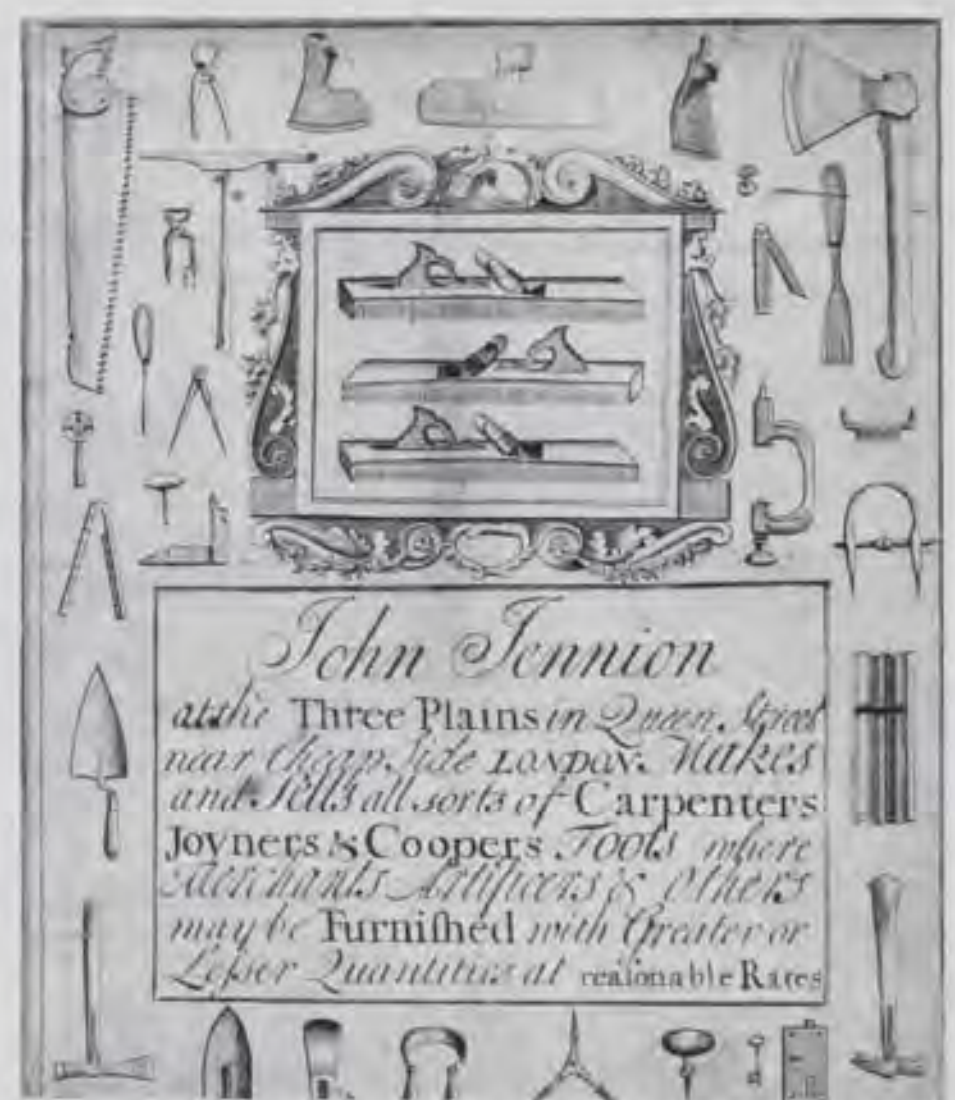 John Jennion
at the Three Plains in Queen Street
near Cheap Side LONDON. Makes
and Sells all sorts of Carpenters
Joyners & Coopers Tools where
Merchants Artificers & others
may be Furniſhed with Greater or
Leſser Quantities at reaſonable Rates